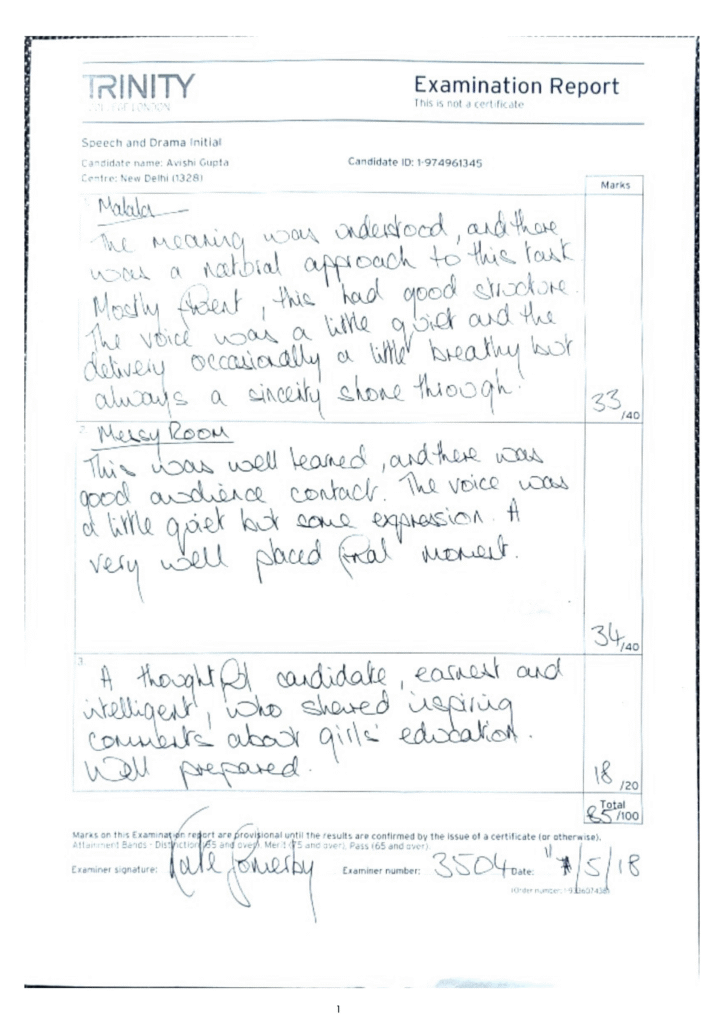 TRINITY
COLLEGE LONDON
Examination Report
This is not a certificate
Speech and Drama Initial
Candidate name: Avishi Gupta
Candidate ID: 1-974961345
Centre: New Delhi (1328)
Marks
1. Malala
The meaning was understood, and there
was a natural approach to this task
Mostly fluent, this had good structure.
The voice was a little quiet and the
delivery occasionally a little breathy but
always a sincerity shone through.
33 /40
2. Messy Room
This was well learned, and there was
good audience contact. The voice was
a little quiet but some expression. A
very well placed final moment.
34 /40
3.
A thoughtful candidate, earnest and
intelligent, who shared inspiring
comments about girls' education.
Well prepared.
18 /20
Total
85 /100
Marks on this Examination report are provisional until the results are confirmed by the issue of a certificate (or otherwise).
Attainment Bands - Distinction (85 and over), Merit (75 and over), Pass (65 and over)
Examiner signature:
Examiner number: 3504 Date: 11/5/18
(Order number:
1